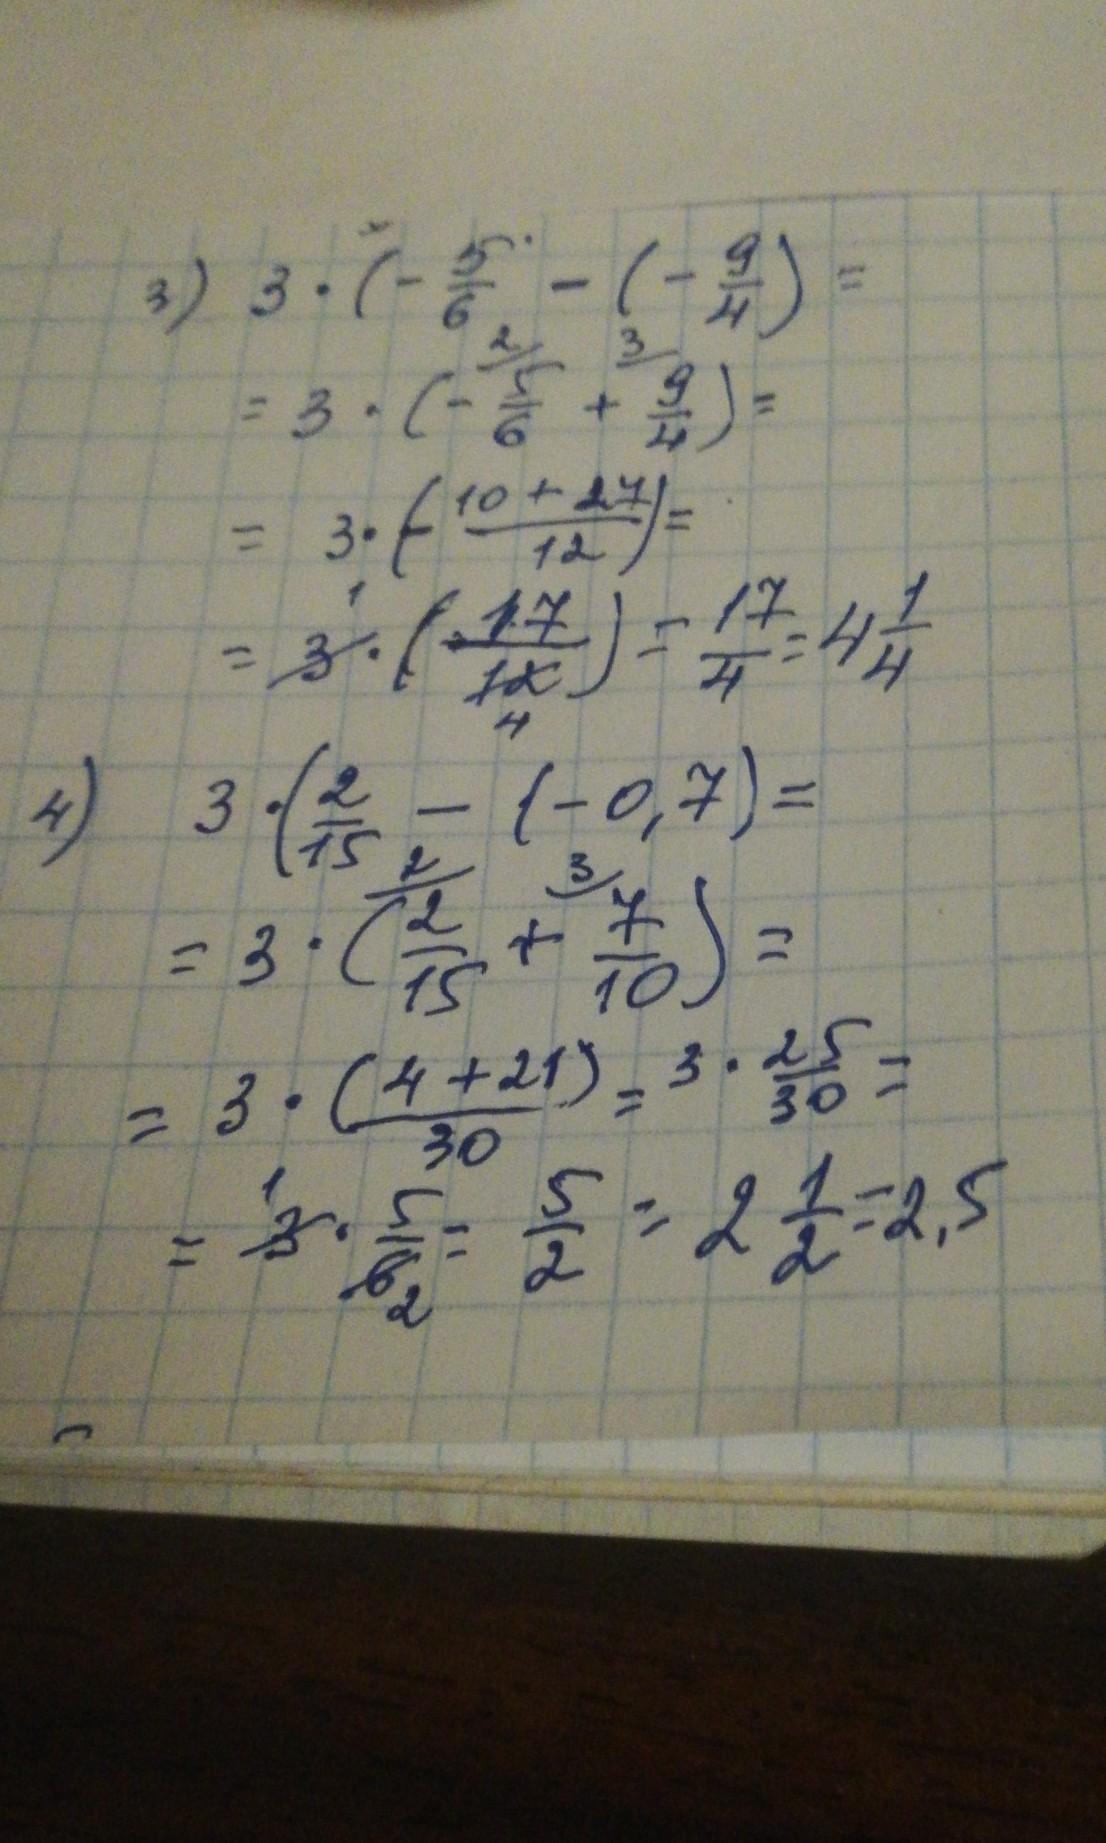 3) 3 · (- 5/6 - (- 9/4) =
= 3 · (- 5/6 + 9/4) =
= 3 · (- 10 + 27/12) =
= 3 · (17/12) = 17/4 = 4 1/4
4) 3 · (2/15 - (-0,7) =
= 3 · (2/15 + 7/10) =
= 3 · (4 + 21)/30 = 3 · 25/30 =
= 3 · 5/6 = 5/2 = 2 1/2 = 2,5